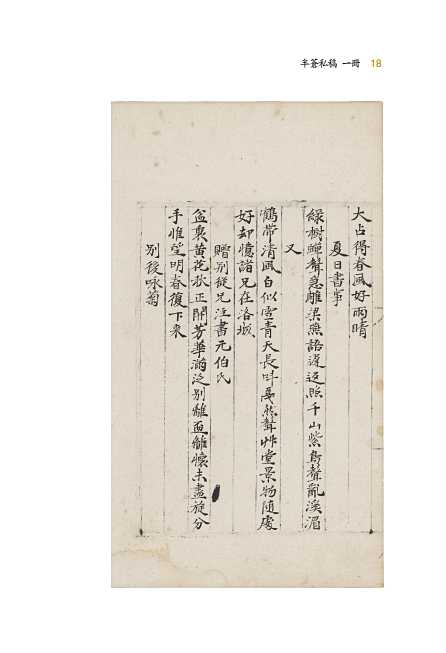 半蒼私稿 一冊 18
大占得春風好雨晴
夏日書事
綠樹蟬聲急雕梁燕語遲返照千山紫鳥聲亂溪湄
又
鶴帶清風白似雪青天長叫戛然聲艸堂景物隨處
好却憶諸兄在洛城
贈別從兄注書元伯氏
盆裏黃花秋正開芳華滿泛別離盃離懷未盡旋分
手惟望明春復下來
別後咏菊